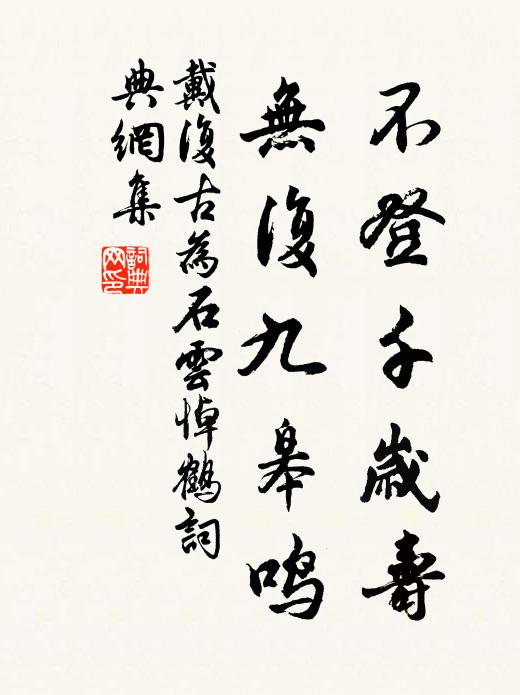 不登千歲壽
無復九皋鳴
戴復古為石雲悼鶴詞
典網集
詞典網印